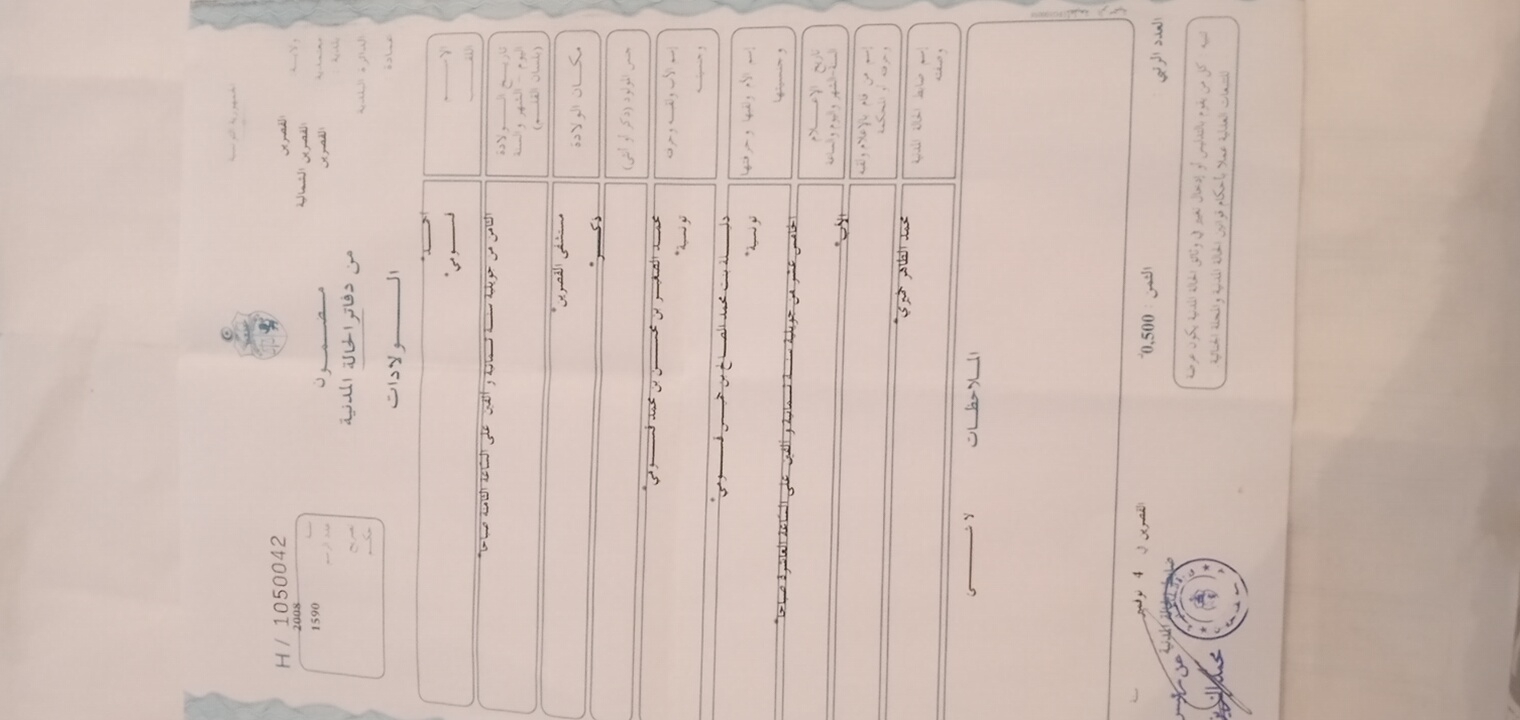 الجمهورية التونسية
ولاية القصرين
معتمدية القصرين الشمالية
بلدية القصرين
الدائرة البلدية
عمادة
مضمون
من دفاتر الحالة المدنية
الولادات
H / 1050042
سنة 2008
عدد الرسم 1590
تصريح
حكم
الاسم
اللقب
أحمد*
قسومي*
تاريخ الولادة
(اليوم - الشهر والسنة
بلسان القلم)
الثامن من جويلية سنة ثمانية و ألفين على الساعة الثامنة صباحا*
مكان الولادة
مستشفى القصرين*
جنس المولود (ذكر أو أنثى)
ذكر*
إسم الأب ولقبه وحرفته
وجنسيته
محمد الصغير بن محسن بن محمد قسومي*
تونسية*
إسم الأم ولقبها وحرفتها
وجنسيتها
دليلة بنت محمد الصالح بن خميس قسومي*
تونسية*
تاريخ الإعلام
السنة والشهر واليوم والساعة
الخامس عشر من جويلية سنة ثمانية و ألفين على الساعة العاشرة صباحا*
إسم من قام بالإعلام ولقبه
وحرفته أو المحكمة
الأب*
إسم ضابط الحالة المدنية
وصفته
محمد الطاهر
الملاحظات
لا شيء
العدد الرتبي
الثمن : 0,500
القصرين في 4 نوفمبر
ضابط الحالة المدنية
تنبيه كل من يقوم بالتدليس أو إدخال تغيير في وثائق الحالة المدنية يكون عرضة
للتتبعات العدلية عملا بأحكام قوانين الحالة المدنية والمجلة الجنائية